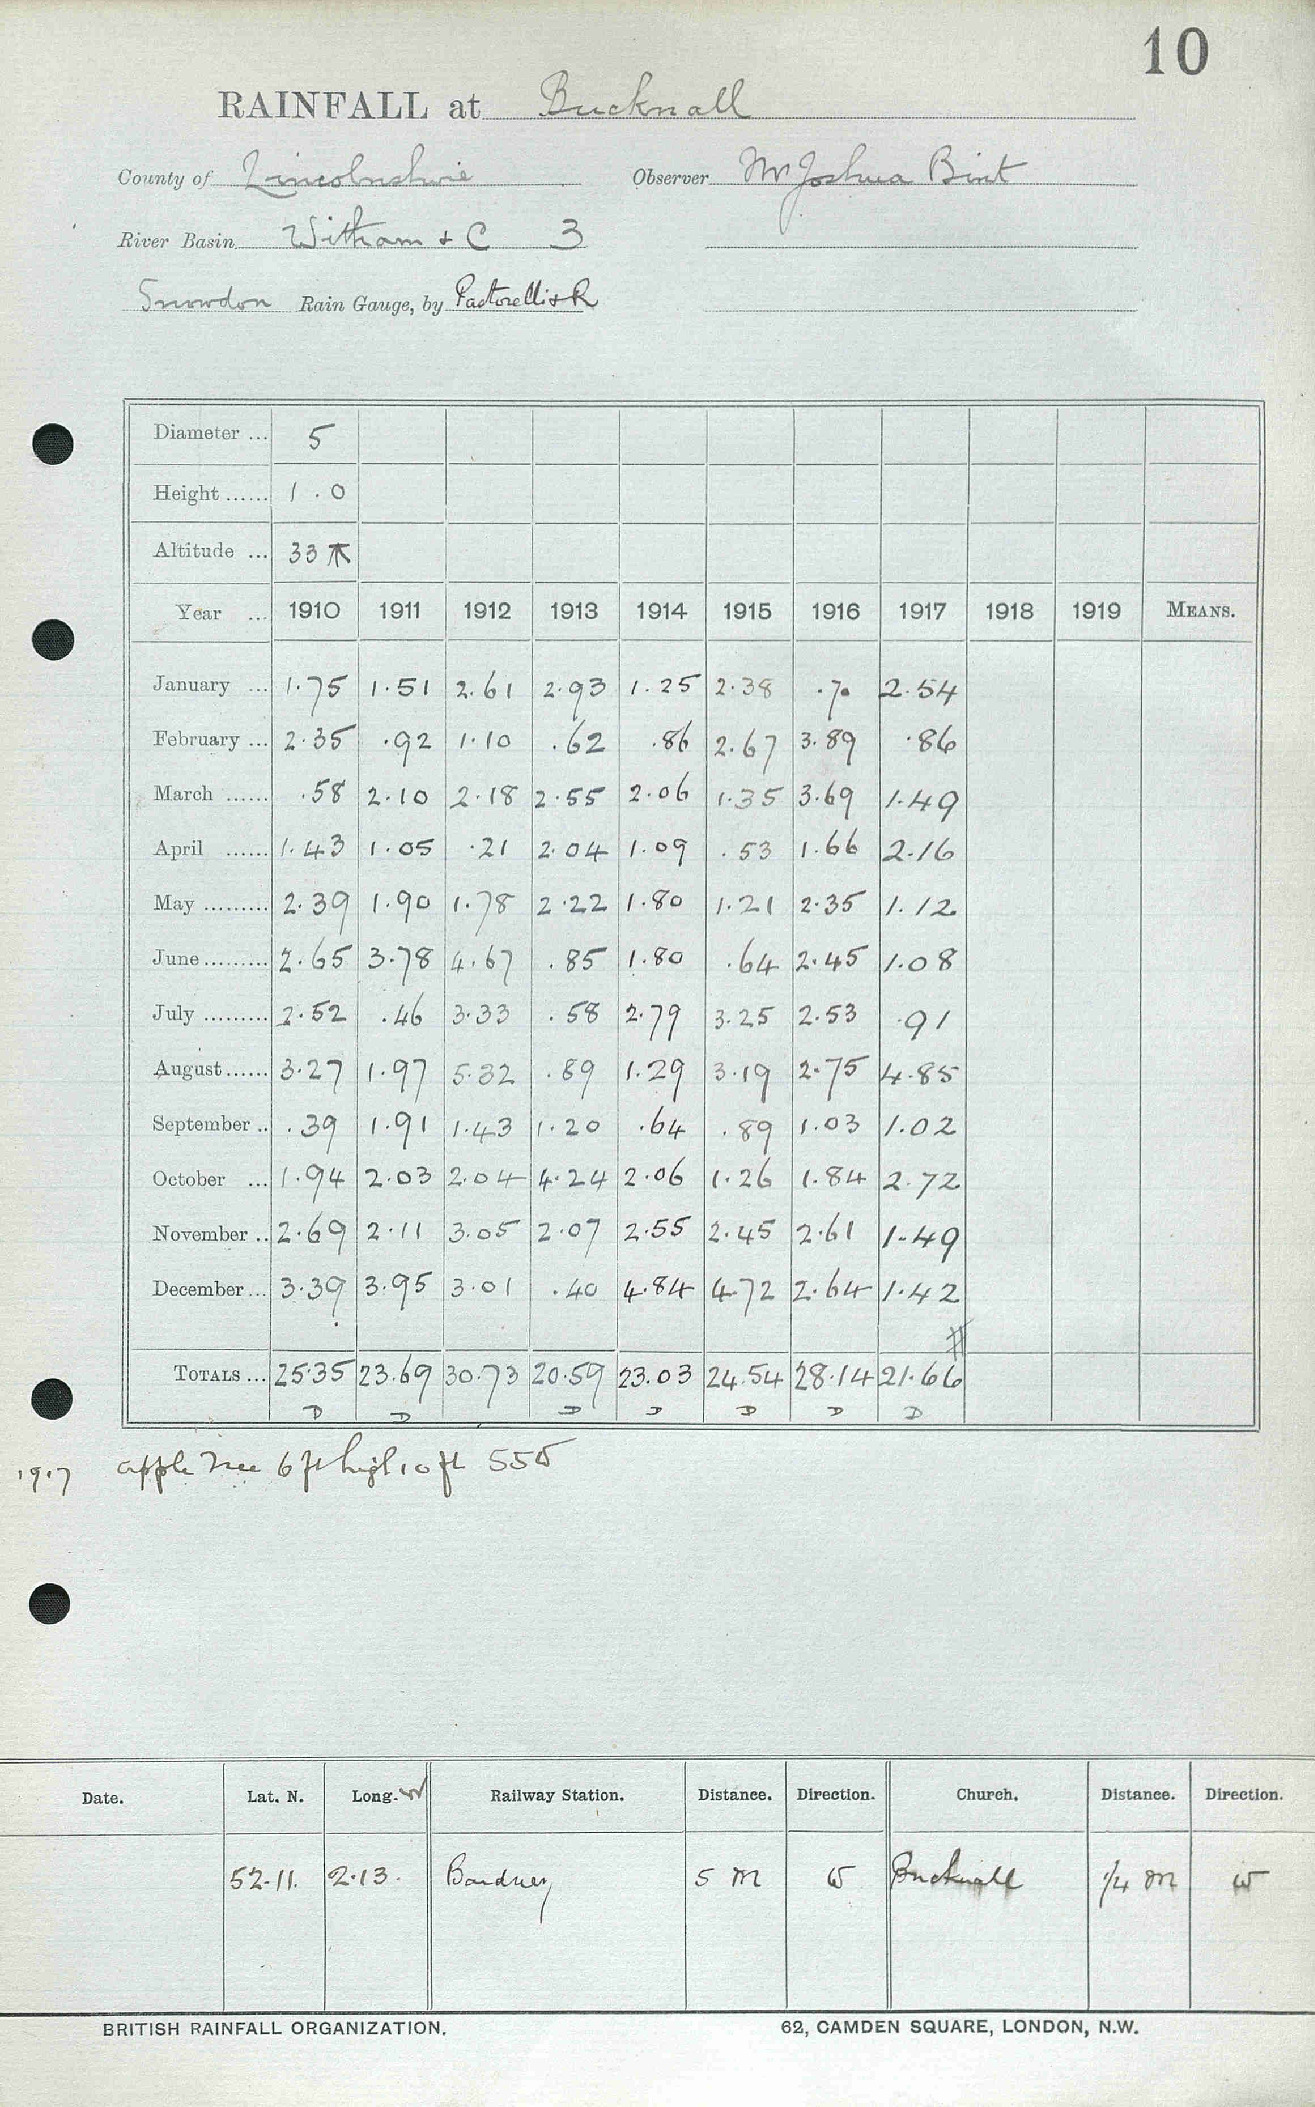 10
RAINFALL at Bucknall
County of Lincolnshire Observer Mr Joshua Bint
River Basin Witham & C 3
Snowdon Rain Gauge, by Pastorelli & R
Diameter ... 5
Height ...... 1.0
Altitude ... 33
Year ... 1910 1911 1912 1913 1914 1915 1916 1917 1918 1919 MEANS.
January ... 1.75 1.51 2.61 2.93 1.25 2.38 .70 2.54
February ... 2.35 .92 1.10 .62 .86 2.67 3.89 .86
March ...... .58 2.10 2.18 2.55 2.06 1.35 3.69 1.49
April ...... 1.43 1.05 .21 2.04 1.09 .53 1.66 2.16
May ......... 2.39 1.90 1.78 2.22 1.80 1.21 2.35 1.12
June ......... 2.65 3.78 4.67 .85 1.80 .64 2.45 1.08
July ......... 2.52 .46 3.33 .58 2.79 3.25 2.53 .91
August ...... 3.27 1.97 5.32 .89 1.29 3.19 2.75 4.85
September .. .39 1.91 1.43 1.20 .64 .89 1.03 1.02
October ... 1.94 2.03 2.04 4.24 2.06 1.26 1.84 2.72
November .. 2.69 2.11 3.05 2.07 2.55 2.45 2.61 1.49
December ... 3.39 3.95 3.01 .40 4.84 4.72 2.64 1.42
TOTALS ... 25.35 23.69 30.73 20.59 23.03 24.54 28.14 21.66
D D D D D D D
1917 apple Tree 6 ft high 10 ft SSW
Date. Lat. N. Long. W Railway Station. Distance. Direction. Church. Distance. Direction.
52.11. 2.13. Bardney 5 M W Bucknall 1/4 M W
BRITISH RAINFALL ORGANIZATION. 62, CAMDEN SQUARE, LONDON, N.W.